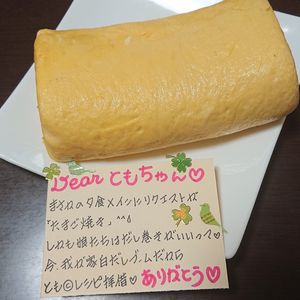 Dear ともちゃん♡
まさかの夕食メインにリクエストが
"たまご焼き" ^^
しかも娘たちはだし巻きがいいって♡
今、我が家白だしブームだから
とも©レシピ採用♡ ありがとう♡